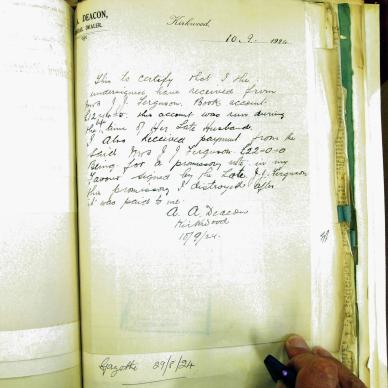 A. DEACON,
DEALER.
Kirkwood,
10. 9. 1924
This to certify that I the
undersigned have received from
Mrs J. J. Ferguson. Book account
this account was run during
the time of Her Late Husband.
I Also Received payment from the
Said Mrs J J Ferguson £22-0-0
Being for a promissory note in my
favour signed by the Late J. J. Ferguson
this promissory I distroyed after
it was paid to me.
A. A. Deacon
Kirkwood
10/9/24.
Gazette 29/8/24